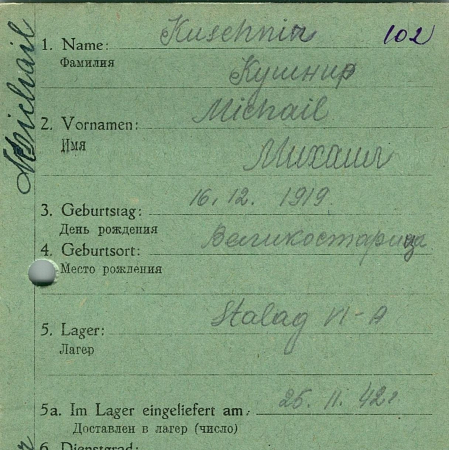 Michail
1. Name: Kuschnir 102
Фамилия Кушнир
2. Vornamen: Michail
Имя Михаил
3. Geburtstag: 16. 12. 1919.
День рождения
4. Geburtsort: Великостарица
Место рождения
5. Lager: Stalag VI-A
Лагер
5a. Im Lager eingeliefert am: 25. 11. 42г
Доставлен в лагер (число)
6. Dienstgrad: